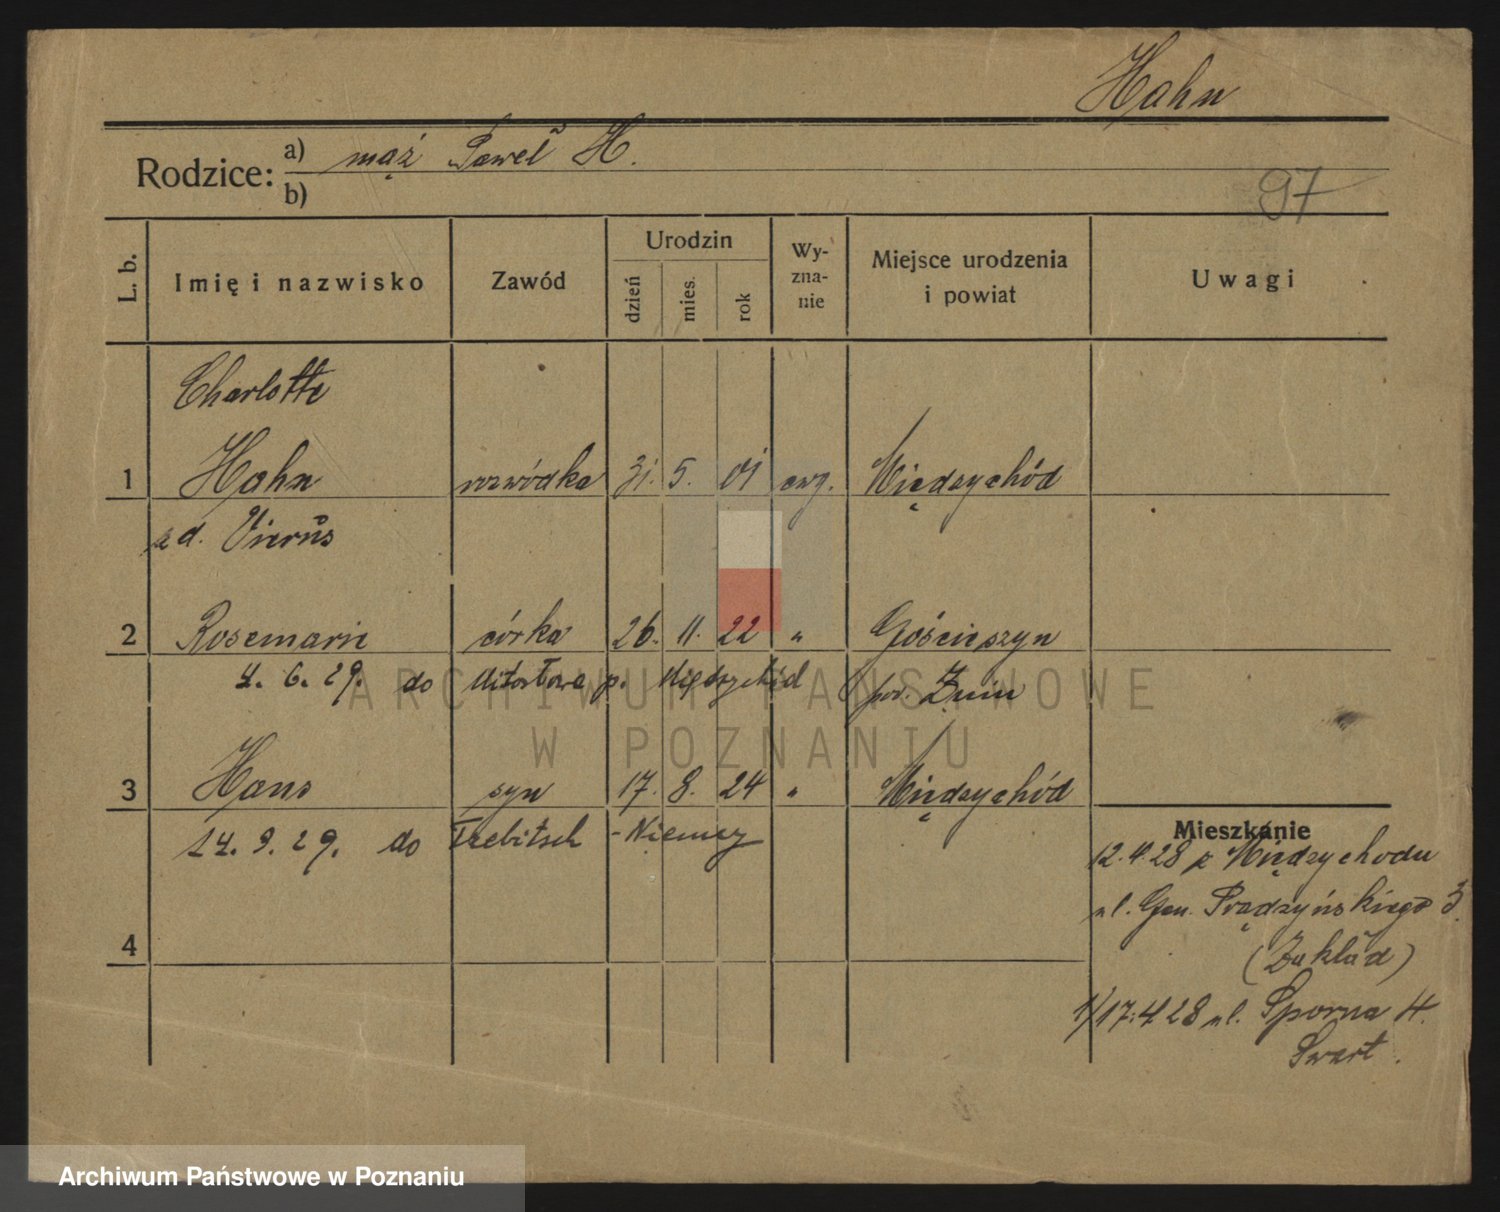 Hahn
Rodzice: a) mąż Paweł H.
b)
97
L. b. Imię i nazwisko Zawód Urodzin dzień mies. rok Wyznanie Miejsce urodzenia i powiat Uwagi
Charlotte
1 Hahn rozwódka 31. 5. 01 ewg. Międzychód
z d. Vierus
2 Rosemarie córka 26. 11. 22 " Gościeszyn
4. 6. 29. do p. Międzychód pow. Żnin
3 Hans syn 17. 8. 24 " Międzychód
14. 9. 29. do Trebitsch - Niemcy
4
Mieszkanie
12.4.28 z Międzychodu
ul. Gen. Prądzyńskiego 3.
(Zakład)
1/17.4 28 ul. Sporna 4.
Swart.
ARCHIWUM PAŃSTWOWE
W POZNANIU
Archiwum Państwowe w Poznaniu